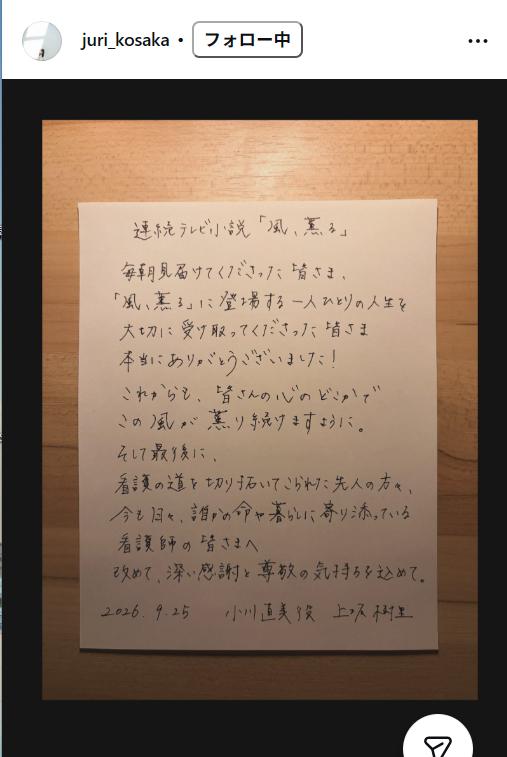 juri_kosaka • フォロー中
連続テレビ小説「風、薫る」
毎朝見届けてくださった皆さま、
「風、薫る」に登場する一人ひとりの人生を
大切に受け取ってくださった皆さま
本当にありがとうございました!
これからも、皆さんの心のどこかで
この風が薫り続けますように。
そして最後に、
看護の道を切り拓いてこられた先人の方々、
今も日々、誰かの命や暮らしに寄り添っている
看護師の皆さまへ
改めて、深い感謝と尊敬の気持ちを込めて。
2026.9.25 小川直美役 上坂樹里